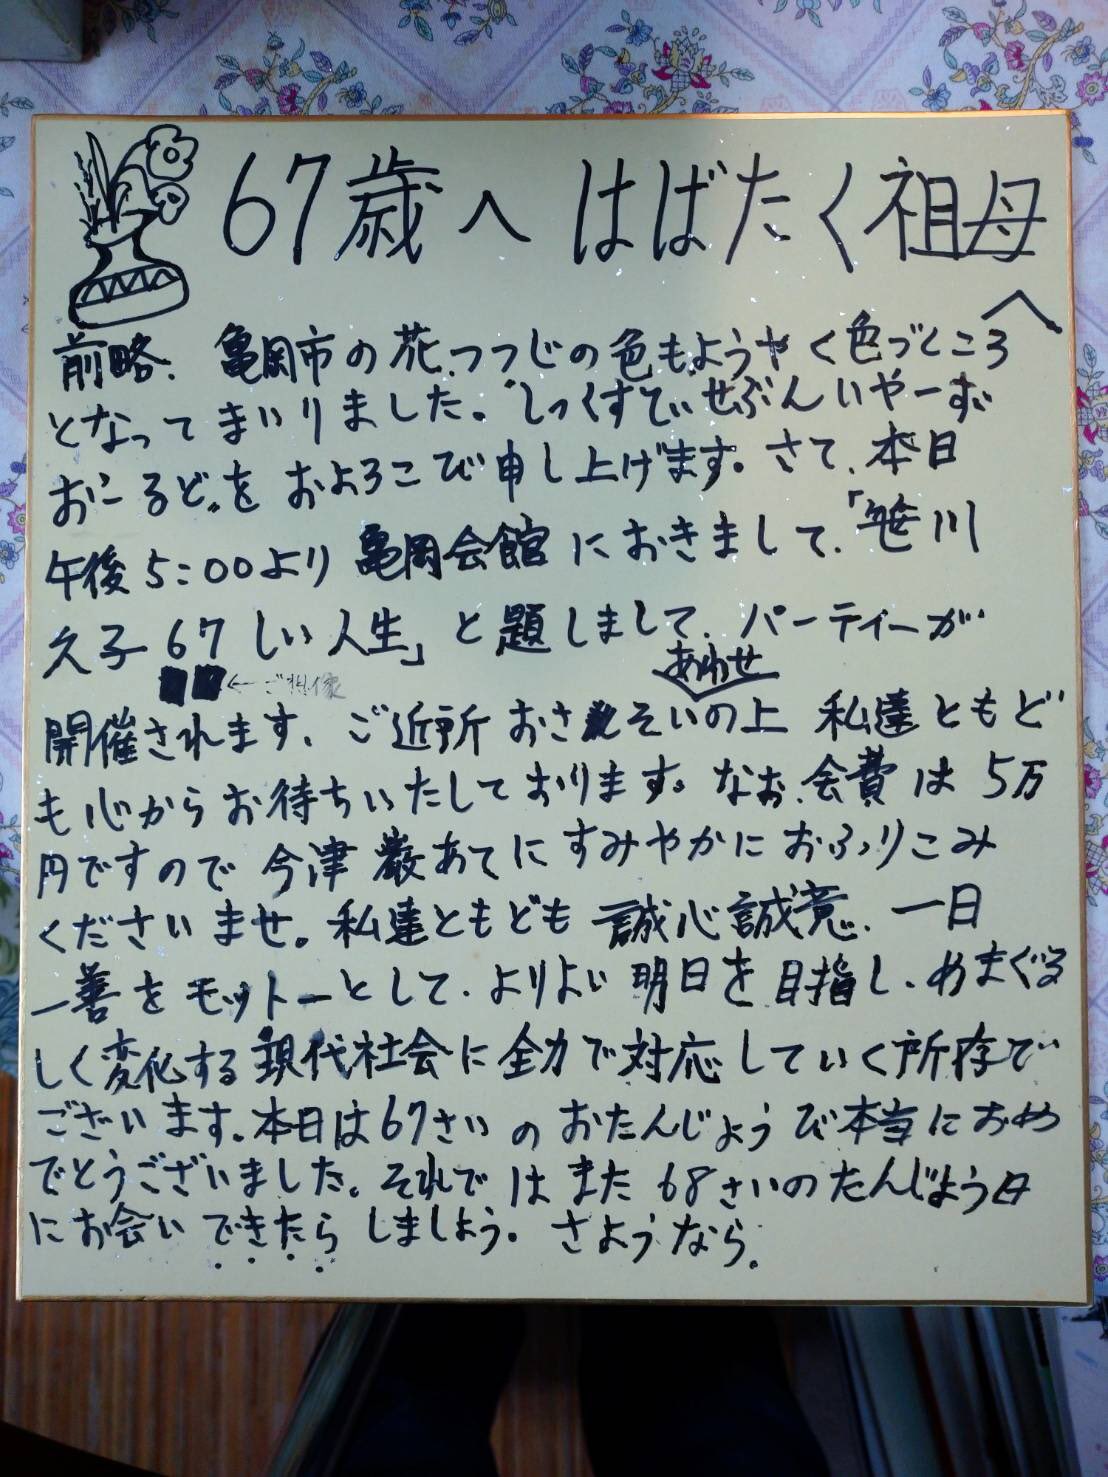 67歳へ はばたく祖母
へ
前略、亀岡市の花、つつじの色もようやく色づくところ
となってまいりました。しっくすてぃせぶんいやーず
おーるど。を およろこび申し上げます。さて、本日
午後5:00より 亀岡会館におきまして、「笹川
久子 67しい人生」と題しまして、パーティーが
←ご想像
あわせ
開催されます、ご近所おさそいの上 私達ともど
も心からお待ちいたしております。なお、会費は5万
円ですので 今津 巌あてにすみやかにおふりこみ
くださいませ。私達ともども 誠心誠意、一日
一善をモットーとして、よりよい明日を目指し、めまぐる
しく変化する現代社会に全力で対応していく所存で
ございます。本日は67さいのおたんじょうび本当におめ
でとうございました。それではまた68さいのたんじょう日
にお会いできたらしましょう。さようなら。